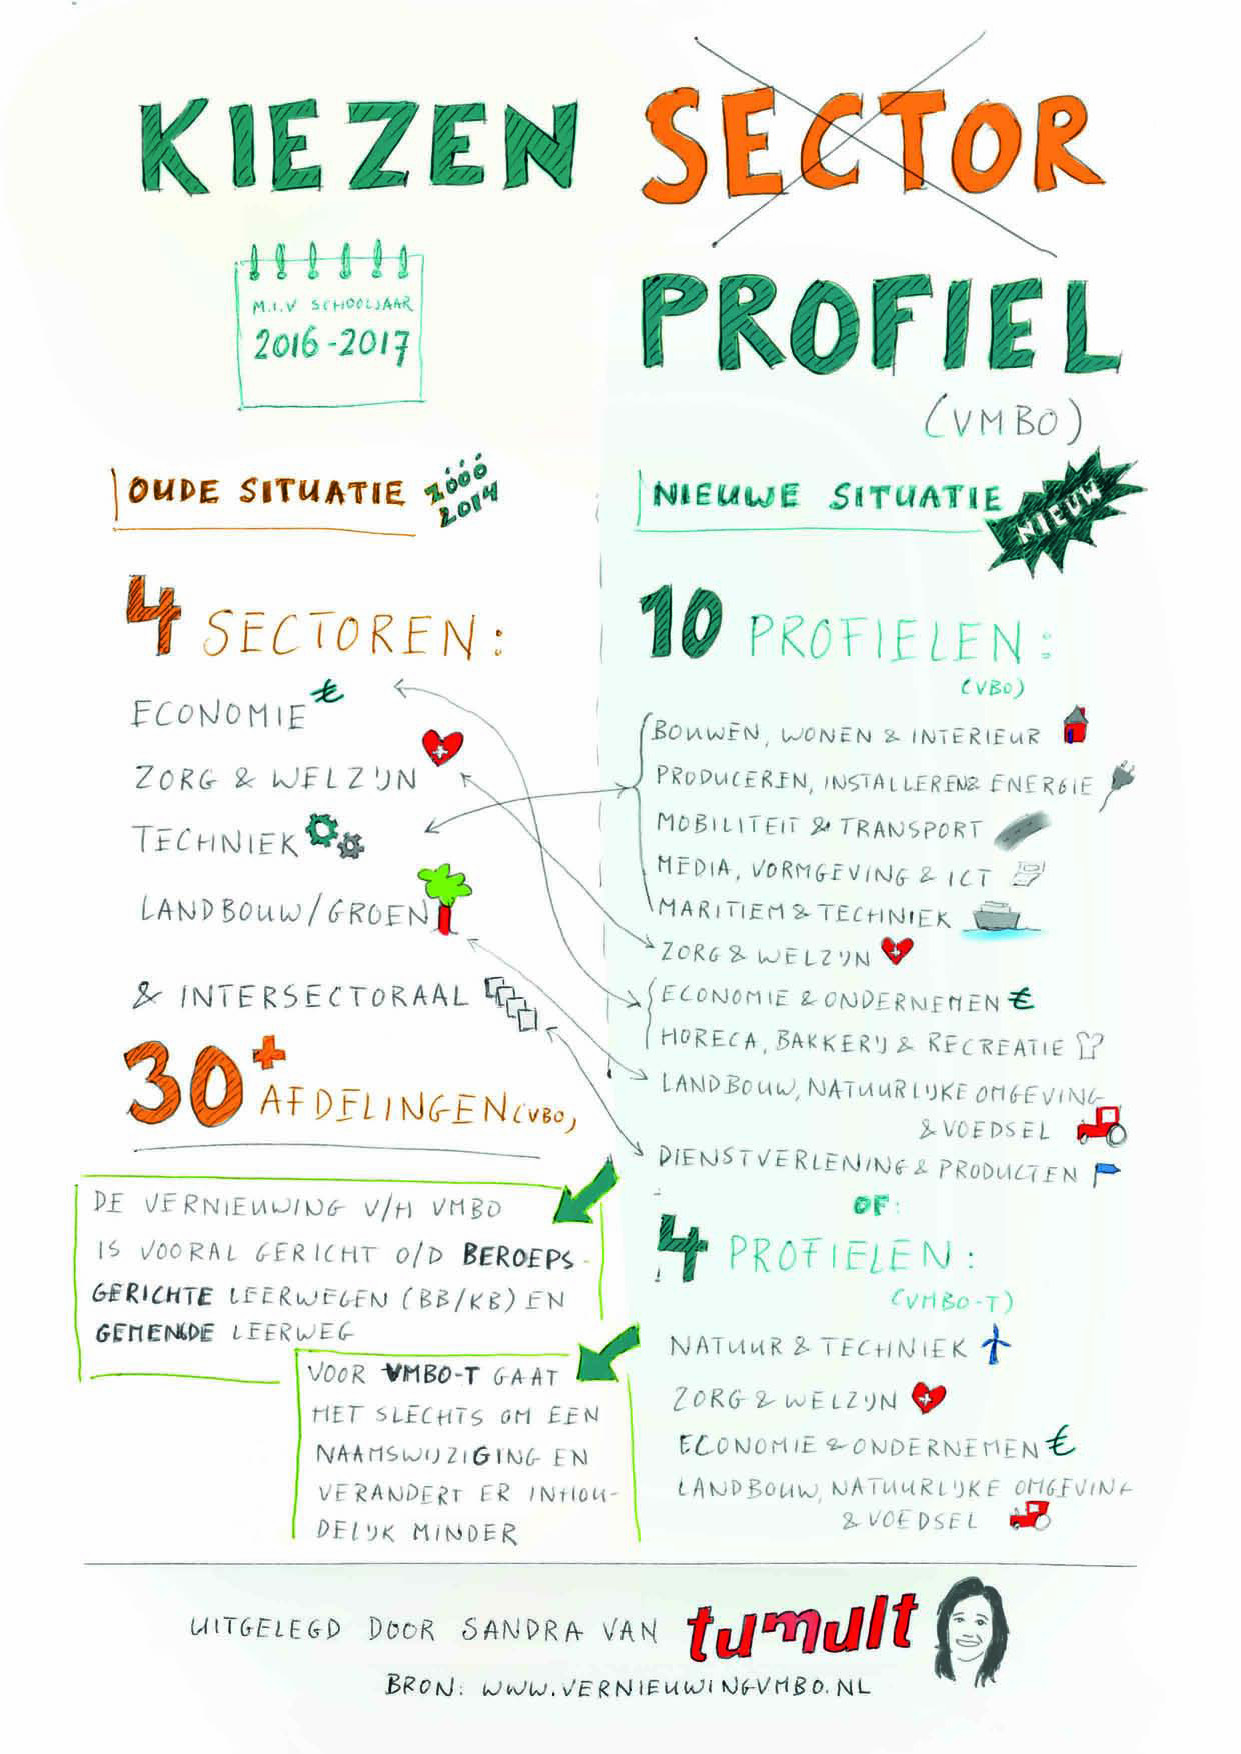 KIEZEN SECTOR
PROFIEL
(VMBO)
M.I.V SCHOOLJAAR
2016-2017
OUDE SITUATIE 2000
2014
4 SECTOREN:
ECONOMIE €
ZORG & WELZIJN
TECHNIEK
LANDBOUW/GROEN
& INTERSECTORAAL
30+ AFDELINGEN (VBO)
DE VERNIEUWING V/H VMBO
IS VOORAL GERICHT O/D BEROEPS-
GERICHTE LEERWEGEN (BB/KB) EN
GEMENGDE LEERWEG
VOOR VMBO-T GAAT
HET SLECHTS OM EEN
NAAMSWIJZIGING EN
VERANDERT ER INHOU-
DELIJK MINDER
NIEUWE SITUATIE NIEUW
10 PROFIELEN:
(VBO)
BOUWEN, WONEN & INTERIEUR
PRODUCEREN, INSTALLEREN & ENERGIE
MOBILITEIT & TRANSPORT
MEDIA, VORMGEVING & ICT
MARITIEM & TECHNIEK
ZORG & WELZIJN
ECONOMIE & ONDERNEMEN €
HORECA, BAKKERIJ & RECREATIE
LANDBOUW, NATUURLIJKE OMGEVING
& VOEDSEL
DIENSTVERLENING & PRODUCTEN
OF:
4 PROFIELEN:
(VMBO-T)
NATUUR & TECHNIEK
ZORG & WELZIJN
ECONOMIE & ONDERNEMEN €
LANDBOUW, NATUURLIJKE OMGEVING
& VOEDSEL
UITGELEGD DOOR SANDRA VAN tumult
BRON: WWW.VERNIEUWINGVMBO.NL